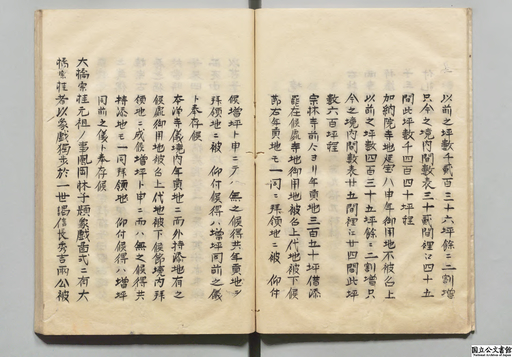 以前之坪数千貳百三十六坪餘ニ二割増
只今之境内間数表三十貳間裡江四十五
間此坪数千四百四十坪程
加納院寺地延宝八申年御用地不被召上
以前之坪数四百三十五坪餘ニ二割増只
今之境内間数表廿五間裡江廿四間此坪
数六百坪程
宗林寺前々ヨリ年貢地三百五十坪借添
罷在候處寺地御用地被召上代地被下候
節右年貢地モ一同ニ拝領地ニ被 仰付
候増坪ト申ニテハ無之候得共年貢地ヲ
拝領地ニ被 仰付候得ハ増坪同前之儀
ト奉存候
本洋寺儀境内年貢地ニ而外持添地有之
候處御用地被召上代地被下候節境内拝
領地ニ成候増坪ト申ニ而ハ無之候得共
持添地モ一同拝領地 仰付候得ハ増坪
同前之儀ト奉存候
大橋宗桂元祖ノ事風岡林子類象戯圖式ニ有大
橋宗桂者以象戯獨歩於一世謁信長秀吉両公被
国立公文書館
National Archives of Japan